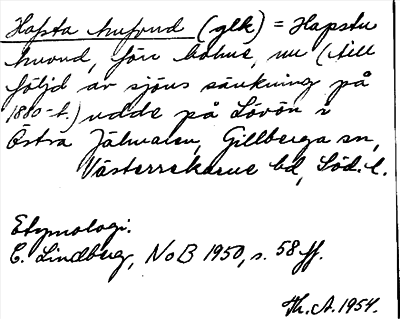 Hapsta huvud (glk) = Hapstu
huvud, förr holme, nu (till
följd av sjöns sänkning på
1880-t.) udde på Lövön i
Östra Hjälmaren, Gillberga sn,
Västerrekarne hd, Söd. l.
Etymologi.
C. Lindberg, NoB 1950, s. 58 ff.
Th. A. 1954.